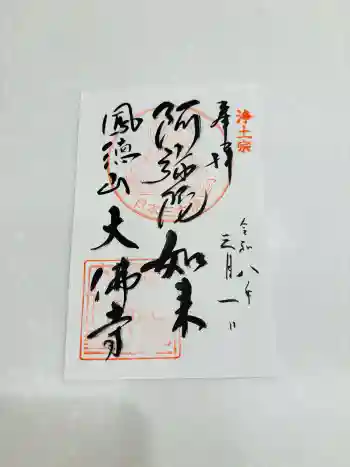 浄土宗
奉拝
令和八年
三月一日
阿弥陀如来
鳳徳山
大佛寺